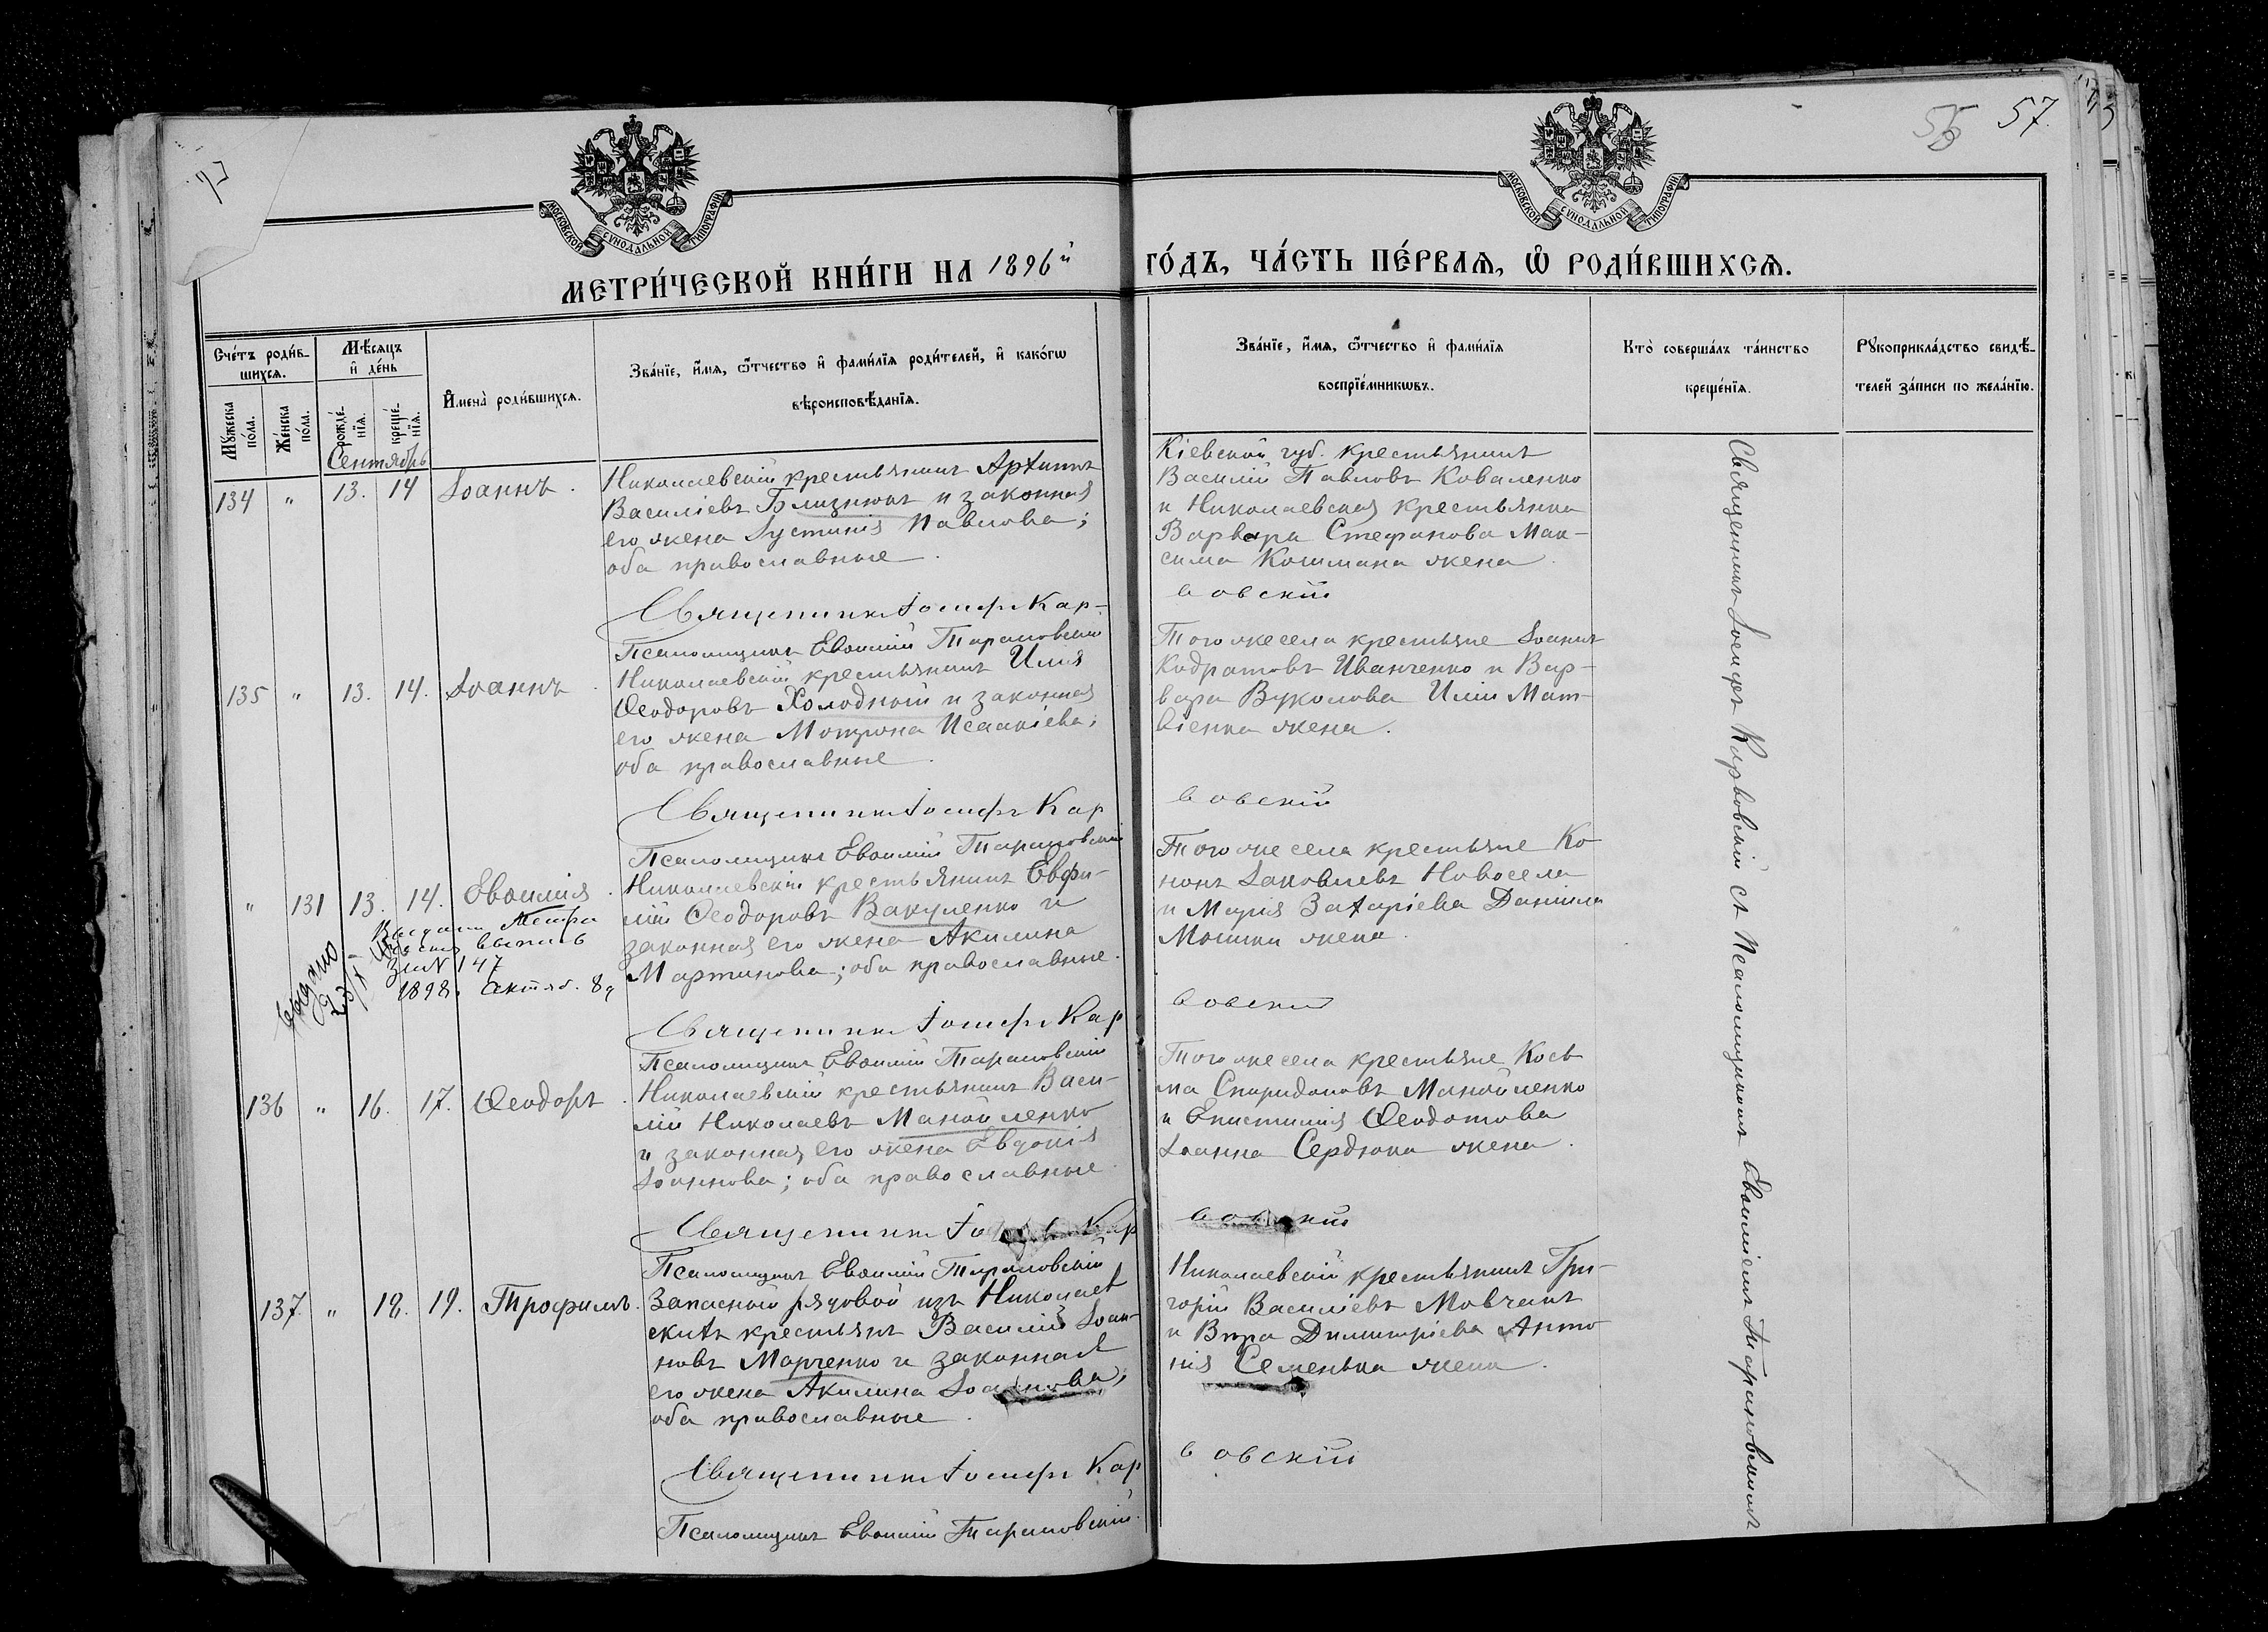 55 57
МОСКОВСКОЙ СѴНОДАЛЬНОЙ ТИПОГРАФІИ
МОСКОВСКОЙ СѴНОДАЛЬНОЙ ТИПОГРАФІИ
МЕТРИ́ЧЕСКОЙ КНИ́ГИ НА 1896й
ГО́ДЪ, ЧА́СТЬ ПЕ́РВАЯ, Ѡ҆ РОДИ́ВШИХСЯ.
Сче́тъ роди́в-
шихся.
Мꙋ́жеска
по́ла.
Же́нска
по́ла.
Мѣ́сяцъ
и҆ де́нь
рожде́-
нїя.
креще́-
нїя.
И҆мена̀ роди́вшихся.
Зва́нїе, и҆́мя, ѻ҆́тчество и҆ фами́лїя роди́телей, и҆ како́гѡ
вѣроисповѣ́данїя.
Зва́нїе, и҆́мя, ѻ҆́тчество и҆ фами́лїя
воспрїе́мникѡвъ.
Кто̀ соверша́лъ та́инство
креще́нїя.
Рꙋкоприкла́дство свидѣ́-
телей за́писи по жела́нїю.
Сентябрь
134 " 13. 14 Іоаннъ.
Николаевскій крестьянинъ Архипъ
Василіевъ Близнюкъ и законная
его жена Іустинія Павлова;
оба православные.
Священникъ Іосифъ Кар-
Псаломщикъ Евѳимій Тарановскій
Кіевской губ. крестьянинъ
Василій Павловъ Коваленко
и Николаевская крестьянка
Варвара Стефанова Мак-
сима Кошмана жена.
вовскій
135 " 13. 14. Іоаннъ.
Николаевскій крестьянинъ Илія
Ѳеодоровъ Холодный и законная
его жена Мотрона Исаакіева;
оба православные.
Священникъ Іосифъ Кар
Псаломщикъ Евѳимій Тарановскій
Того же села крестьяне Іоаннъ
Кодратовъ Иванченко и Вар-
вара Вуколова Иліи Мат-
віенка жена.
вовскій
" 131 13. 14. Евѳимія.
Выдано
Метри
выпись
За № 147
1898. Октяб. 8
Николаевскій крестьянинъ Евфи-
мій Ѳеодоровъ Вакуленко и
законная его жена Акилина
Мартинова; оба православные.
Священникъ Іосифъ Кар
Псаломщикъ Евѳимій Тарановскій
Того же села крестьяне Ко-
нонъ Іаковлевъ Новосела
и Марія Захаріева Даніила
Мошки жена.
вовскій
136 " 16. 17. Ѳеодоръ.
Николаевскій крестьянинъ Васи-
лій Николаевъ Манойленко
и законная его жена Евдокія
Іоаннова; оба православные.
Священникъ Кар
Псаломщикъ Евѳимій Тарановскій
Того же села крестьяне Кось-
ма Спиридоновъ Манойленко
и Епистимія Ѳеодотова
Іоанна Сердюка жена.
вовскій
137. " 18. 19. Трофимъ.
Запасный рядовой изъ Николаев
скихъ крестьянъ Василій Іоан-
новъ Марченко и законная
его жена Акилина Іоаннова;
оба православные.
Священникъ Іосифъ Кар
Псаломщикъ Евѳимій Тарановскій.
Николаевскій крестьянинъ Гри-
горій Василіевъ Мовчанъ
и Вѣра Димитріева Анто-
нія Семенька жена.
вовскій
Священникъ Іосифъ Карвовскій съ Псаломщикомъ Евѳиміемъ Тарановскимъ